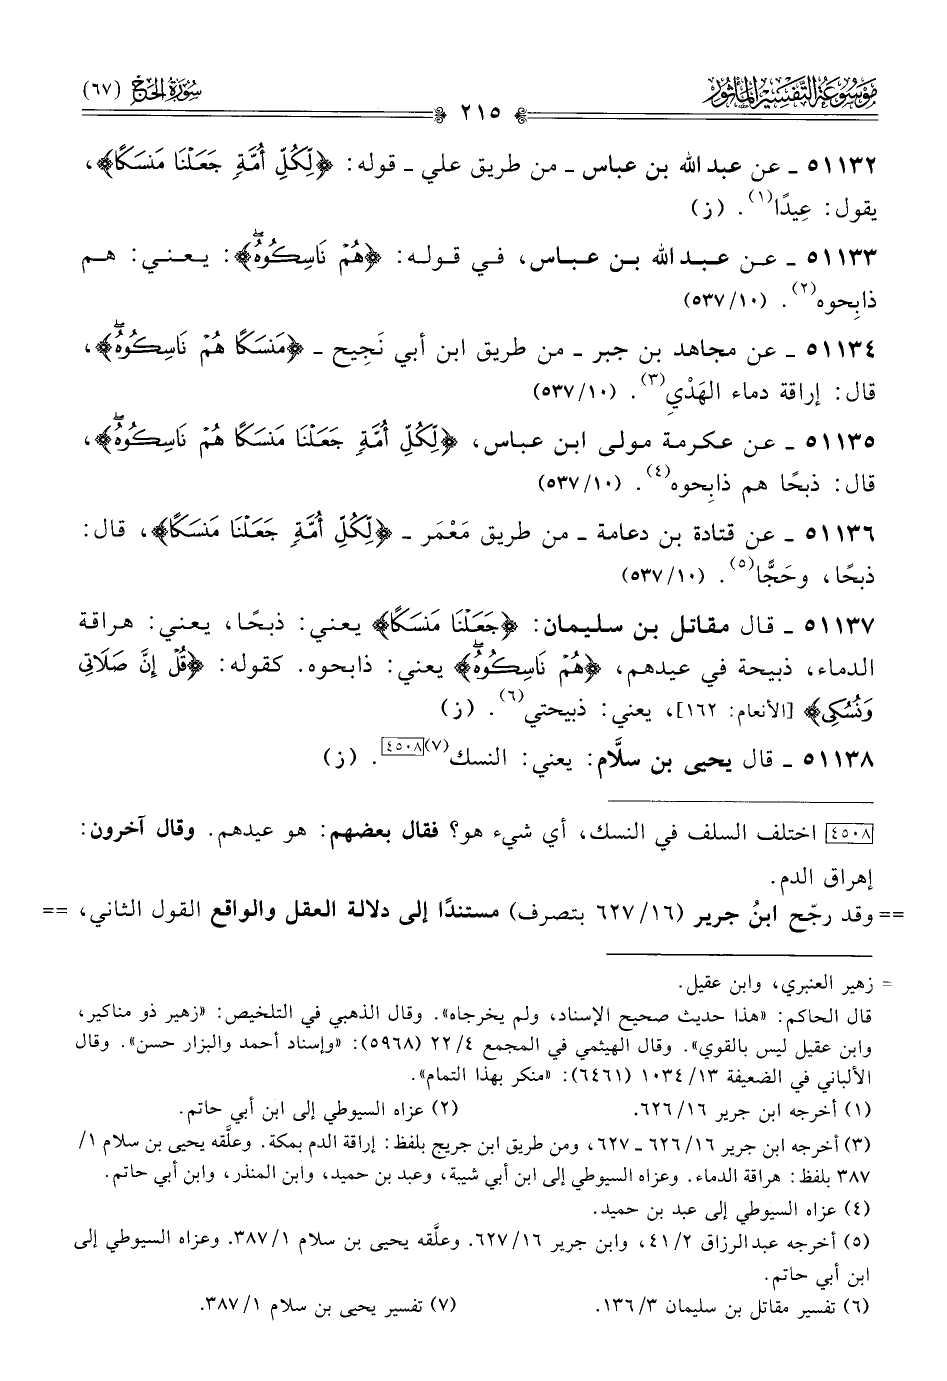 مَوْسُوعَةُ التَّفْسِيرِ المَأْثُورِ
سُورَةُ الحَجّ (٦٧)
٢١٥
٥١١٣٢ ـ عن عبد الله بن عباس ـ من طريق علي ـ قوله: ﴿لِّكُلِّ أُمَّةٍ جَعَلْنَا مَنسَكًا﴾،
يقول: عِيدًا(١). (ز)
٥١١٣٣ ـ عن عبد الله بن عباس، في قوله: ﴿هُمْ نَاسِكُوهُ﴾: يعني: هم
ذابِحوه(٢). (١٠/٥٣٧)
٥١١٣٤ ـ عن مجاهد بن جبر ـ من طريق ابن أبي نَجِيح ـ ﴿مَنسَكًا هُمْ نَاسِكُوهُ﴾،
قال: إراقة دماء الهَدْيِ(٣). (١٠/٥٣٧)
٥١١٣٥ ـ عن عكرمة مولى ابن عباس، ﴿لِكُلِّ أُمَّةٍ جَعَلْنَا مَنسَكًا هُمْ نَاسِكُوهُ﴾،
قال: ذبحًا هم ذابِحوه(٤). (١٠/٥٣٧)
٥١١٣٦ ـ عن قتادة بن دعامة ـ من طريق مَعْمَر ـ ﴿لِّكُلِّ أُمَّةٍ جَعَلْنَا مَنسَكًا﴾، قال:
ذبحًا، وحَجًّا(٥). (١٠/٥٣٧)
٥١١٣٧ ـ قال مقاتل بن سليمان: ﴿جَعَلْنَا مَنسَكًا﴾ يعني: ذبحًا، يعني: هراقة
الدماء، ذبيحة في عيدهم، ﴿هُمْ نَاسِكُوهُ﴾ يعني: ذابحوه. كقوله: ﴿قُلْ إِنَّ صَلَاتِي
وَنُسُكِي﴾ [الأنعام: ١٦٢]، يعني: ذبيحتي(٦). (ز)
٥١١٣٨ ـ قال يحيى بن سلَّام: يعني: النسك(٧)[٤٥٠٨]. (ز)
[٤٥٠٨] اختلف السلف في النسك، أي شيء هو؟ فقال بعضهم: هو عيدهم. وقال آخرون:
إهراق الدم.
== وقد رجّح ابنُ جرير (١٦/٦٢٧ بتصرف) مستندًا إلى دلالة العقل والواقع القول الثاني، ==
= زهير العنبري، وابن عقيل.
قال الحاكم: «هذا حديث صحيح الإسناد، ولم يخرجاه». وقال الذهبي في التلخيص: «زهير ذو مناكير،
وابن عقيل ليس بالقوي». وقال الهيثمي في المجمع ٤/٢٢ (٥٩٦٨): «وإسناد أحمد والبزار حسن». وقال
الألباني في الضعيفة ١٣/١٠٣٤ (٦٤٦١): «منكر بهذا التمام».
(١) أخرجه ابن جرير ١٦/٦٢٦. (٢) عزاه السيوطي إلى ابن أبي حاتم.
(٣) أخرجه ابن جرير ١٦/٦٢٦ ـ ٦٢٧، ومن طريق ابن جريج بلفظ: إراقة الدم بمكة. وعلَّقه يحيى بن سلام ١/
٣٨٧ بلفظ: هراقة الدماء. وعزاه السيوطي إلى ابن أبي شيبة، وعبد بن حميد، وابن المنذر، وابن أبي حاتم.
(٤) عزاه السيوطي إلى عبد بن حميد.
(٥) أخرجه عبدالرزاق ٢/٤١، وابن جرير ١٦/٦٢٧. وعلَّقه يحيى بن سلام ١/٣٨٧. وعزاه السيوطي إلى
ابن أبي حاتم.
(٦) تفسير مقاتل بن سليمان ٣/١٣٦. (٧) تفسير يحيى بن سلام ١/٣٨٧.